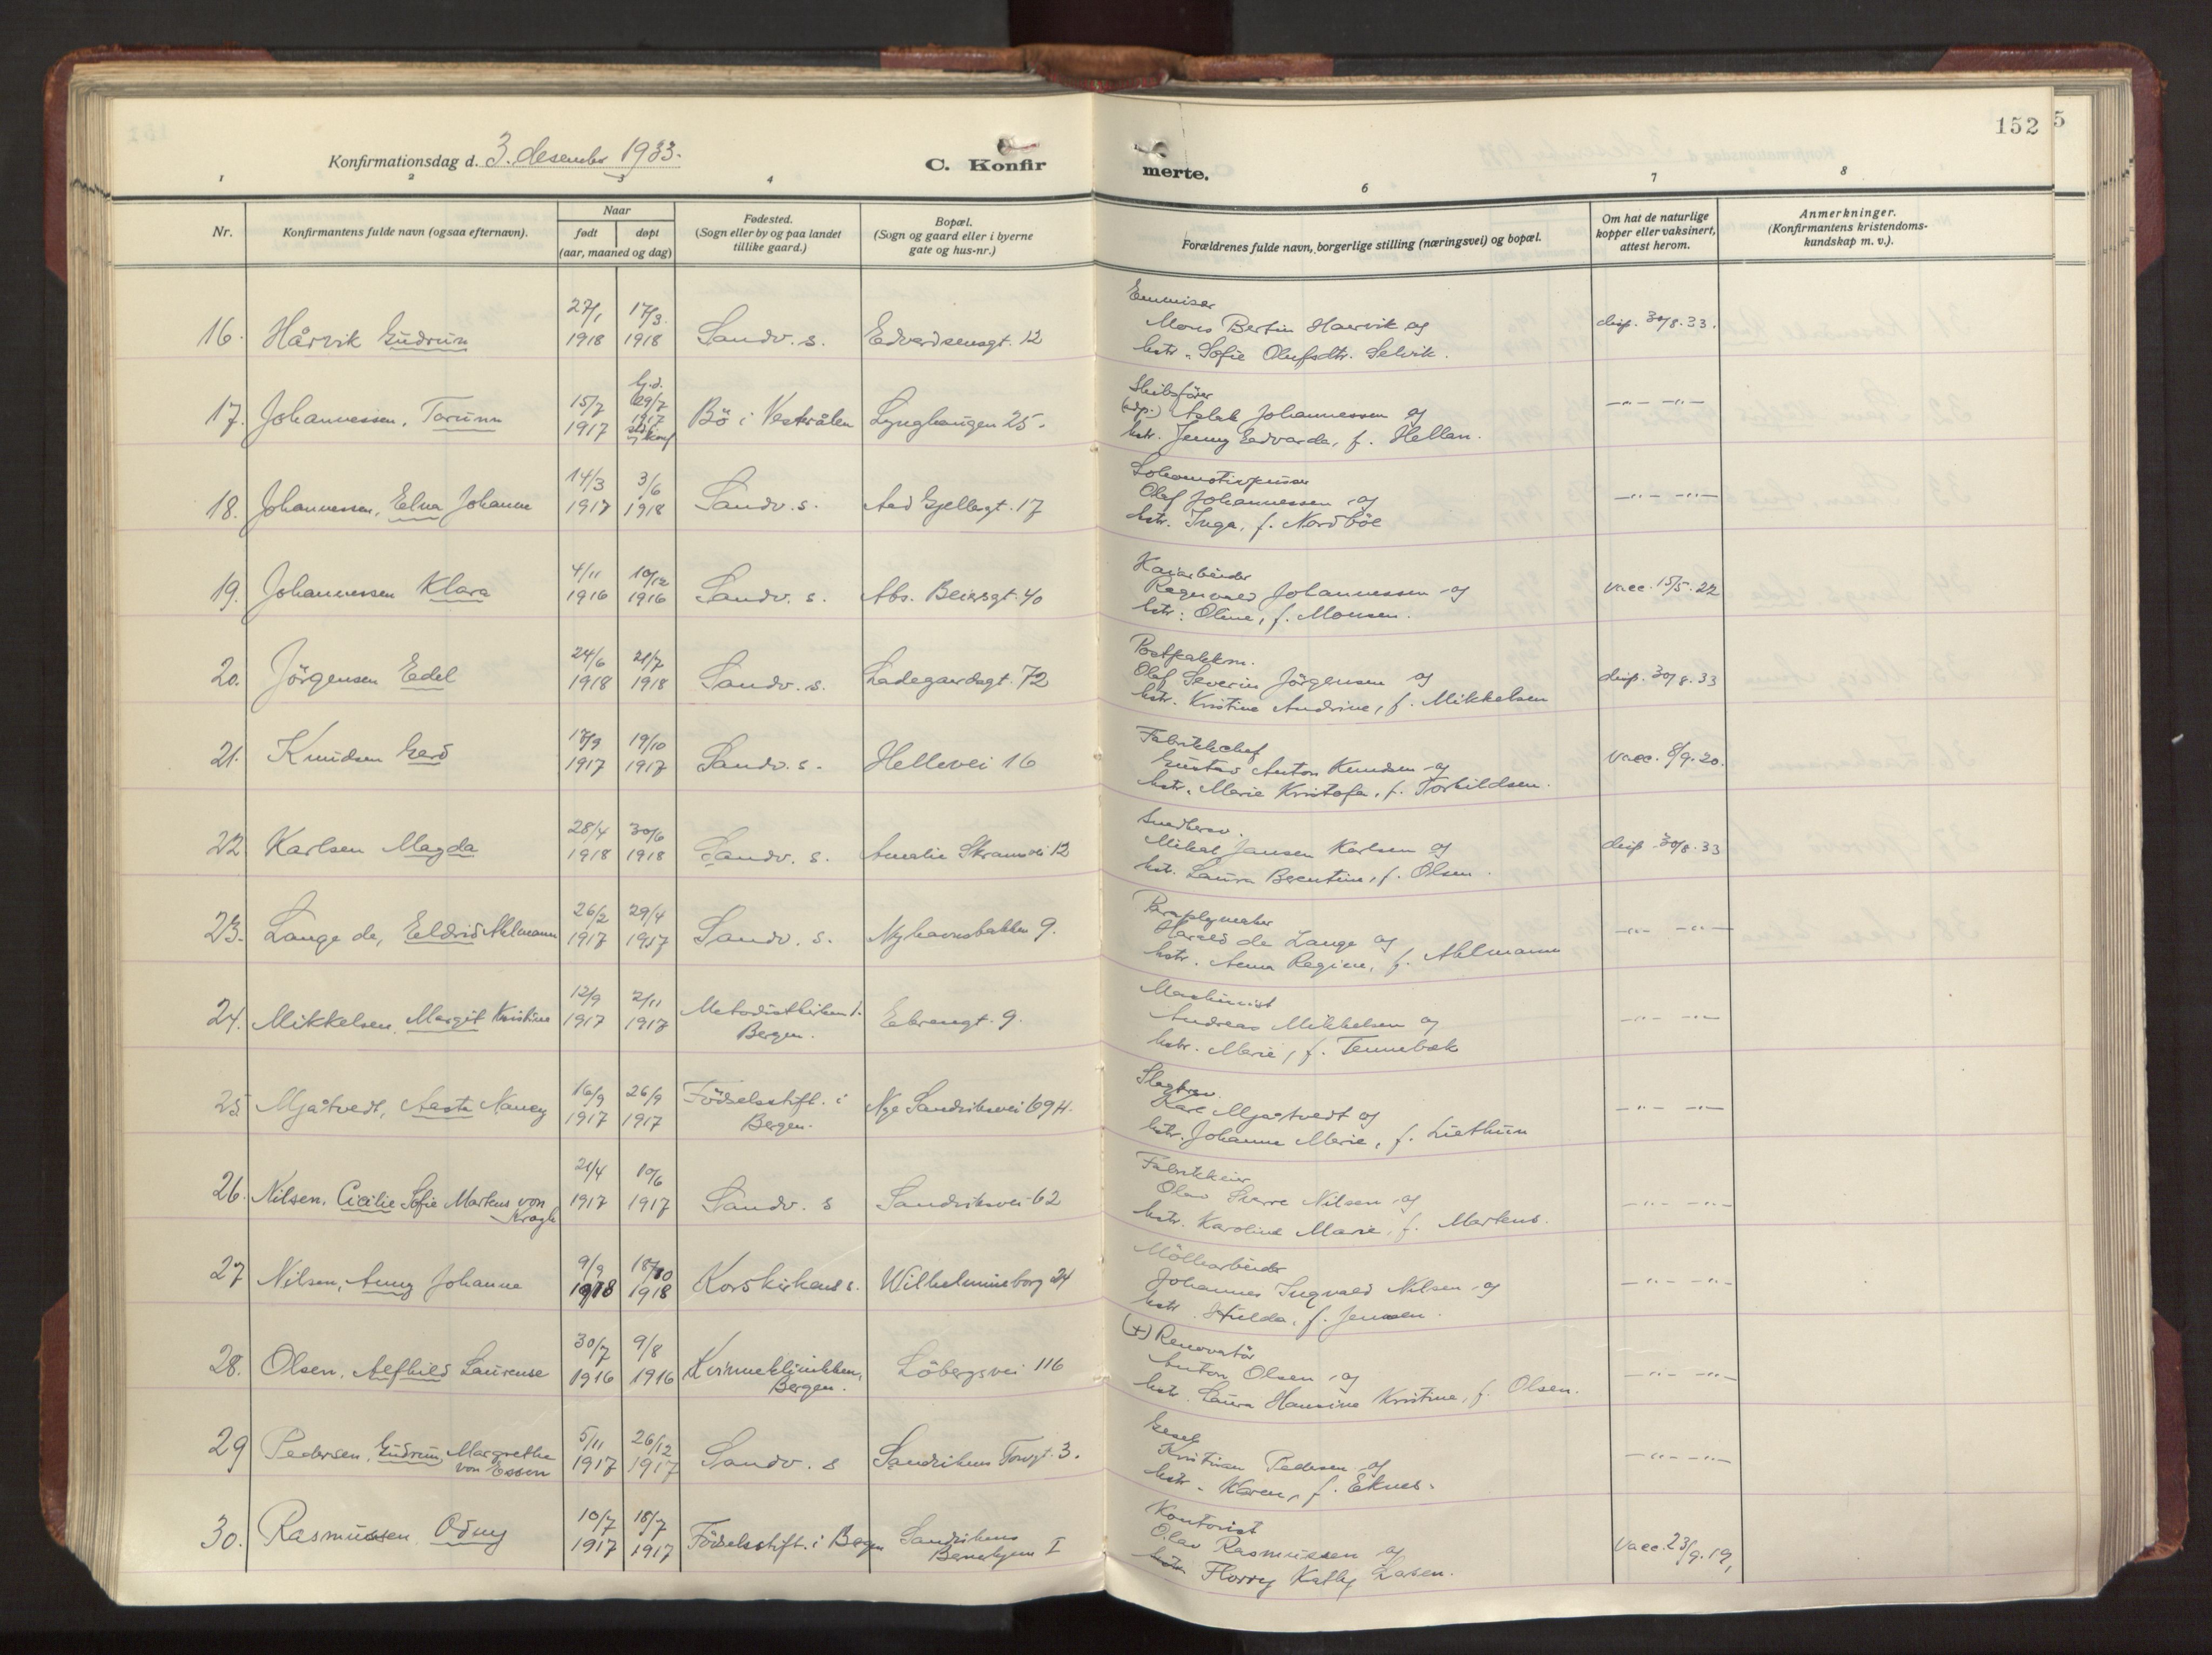 152
5
Konfirmationsdag d. 3. desember 1933.
C. Konfir
merte.
1 2 3 4 6 7 8
Nr.
Konfirmantens fulde navn (ogsaa efternavn).
Naar
født døpt
(aar, maaned og dag)
Fødested.
(Sogn eller by og paa landet
tillike gaard.)
Bopæl.
(Sogn og gaard eller i byerne
gate og hus-nr.)
Forældrenes fulde navn, borgerlige stilling (næringsvei) og bopæl.
Om hat de naturlige
kopper eller vaksinert,
attest herom.
Anmerkninger.
(Konfirmantens kristendoms-
kundskap m. v.).
16. Hårvik Gudrun 27/1 1918 17/3 1918 Sandv. s. Edvardsensgt. 12
Mons Bertin Haarvik og
hstr. Sofie Olufsdtr. Selvik.
disp. 30/8.33.
17. Johannessen, Torunn 15/7 1917 hj.d. 29/7 1917 Bö i Vesterålen Lynghaugen 25.
Skibsförer
(adp.) Aslak Johannessen og
hstr. Jenny Edvarda, f. Hellan.
—„— —„—
18. Johannessen, Elna Johanne 14/3 1917 3/6 1918 Sandv. s. Aad Gjellesgt. 17
Lokomotivpusser
Olaf Johannessen og
hstr. Inga, f. Nordböe
—„— —„—
19. Johannessen Klara 4/11 1916 10/12 1916 Sandv. s. Abs. Beiersgt. 40
Kaiarbeider
Ragnvald Johannessen og
hstr. Oline, f. Monsen.
vacc. 15/5.22
20. Jörgensen Edel 24/6 1918 21/7 1918 Sandv. s. Ladegaardsgt. 72
Postpakkm.
Olaf Severin Jörgensen og
hstr. Kristine Andrine, f. Mikkelsen
disp. 30/8.33
21. Knudsen Gerd 17/9 1917 19/10 1917 Sandv. s. Hellevei 16
Fabrikkchef
Gustav Anton Knudsen og
hstr. Marie Kristofa, f. Torkildsen.
vacc. 8/9.20.
22. Karlsen Magda 28/4 1918 30/6 1918 Sandv. s. Amalie Skramsvei 12
Mikal Jansen Karlsen og
hstr. Laura Berntine, f. Olsen.
disp. 30/8.33
23. Lange de, Eldrid Ahlmann 26/2 1917 29/4 1917 Sandv. s. Nyhavnsbakken 9.
Paraplymaker
Harald de Lange og
hstr. Anna Regine, f. Ahlmann
—„— —„—
24. Mikkelsen, Margit Kristine 12/9 1917 2/11 1917 Metodistkirken i
Bergen. Ebrengt. 9.
Maskinist
Andreas Mikkelsen og
hstr. Marie, f. Tennebæk
—„— —„—
25 Mjåtvedt, Aasta Nancy 16/9 1917 26/9 1917 Födselsstift. i
Bergen. Nye Sandviksvei 69 H.
Kare Mjåtvedt og
hstr. Johanna Marie, f. Liethun
—„— —„—
26. Nilsen, Cicilie Sofie Martens von
Krogh 21/4 1917 10/6 1917 Sandv. s Sandviksvei 62
Fabrikkeier
Olav Sverre Nilsen og
hstr. Karoline Marie, f. Martens.
—„— —„—
27 Nilsen, Anny Johanne 9/9 1918 18/10 1918 Korskirkens s. Wilhelmineborg 24
Möllearbeider
Johannes Ingvald Nilsen og
hstr. Hulda, f. Jensen.
—„— —„—
28. Olsen, Alfhild Laurense 30/7 1916 9/8 1916 Kvinneklinikken,
Bergen. Löbergsvei 116
(+) Renovatör
Anton Olsen og
hstr. Laura Hansine Kristine, f. Olsen.
—„— —„—
29 Pedersen, Gudrun, Margrethe
von Essen 5/11 1917 26/12 1917 Sandv. s Sandvikens Torvgt. 3.
Kristian Pedersen og
hstr. Karen, f. Eknes.
—„— —„—
30. Rasmussen Odny 10/7 1917 18/7 1917 Födselsstift. i Bergen Sandvikens
I
Kontorist
Olav Rasmussen og
hstr. Florry Kathy Larsen.
vacc. 23/9.19,